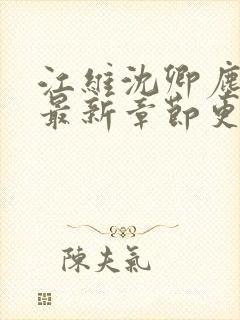 江維沈卿塵
最新章節更
陳夫氣